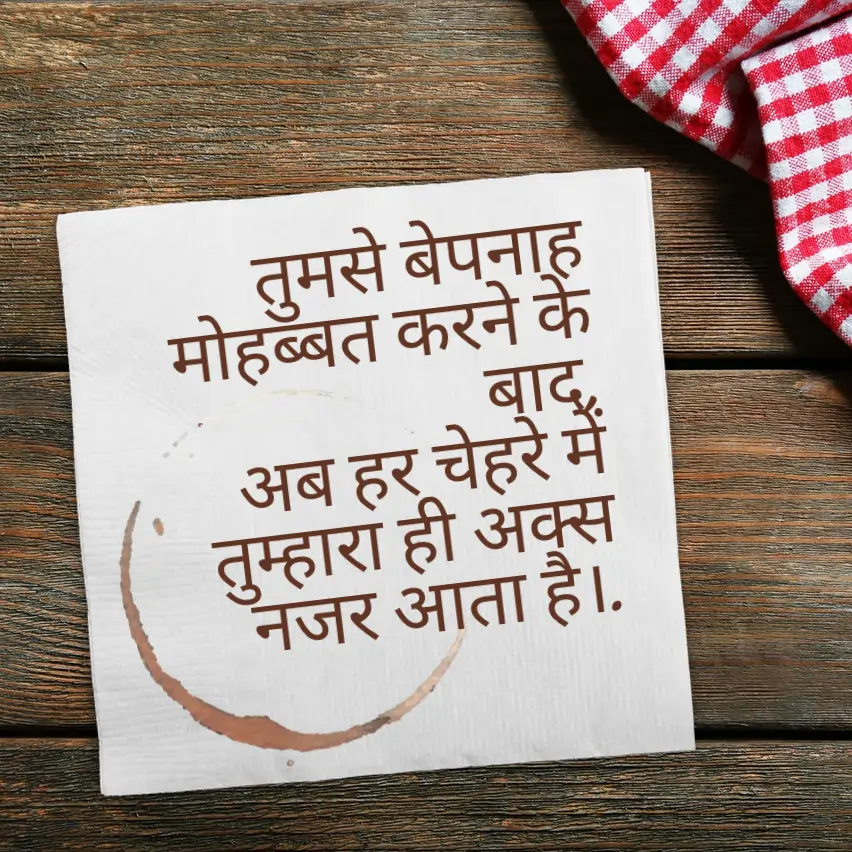 तुमसे बेपनाह
मोहब्बत करने के
बाद,
अब हर चेहरे में
तुम्हारा ही अक्स
नजर आता है।.